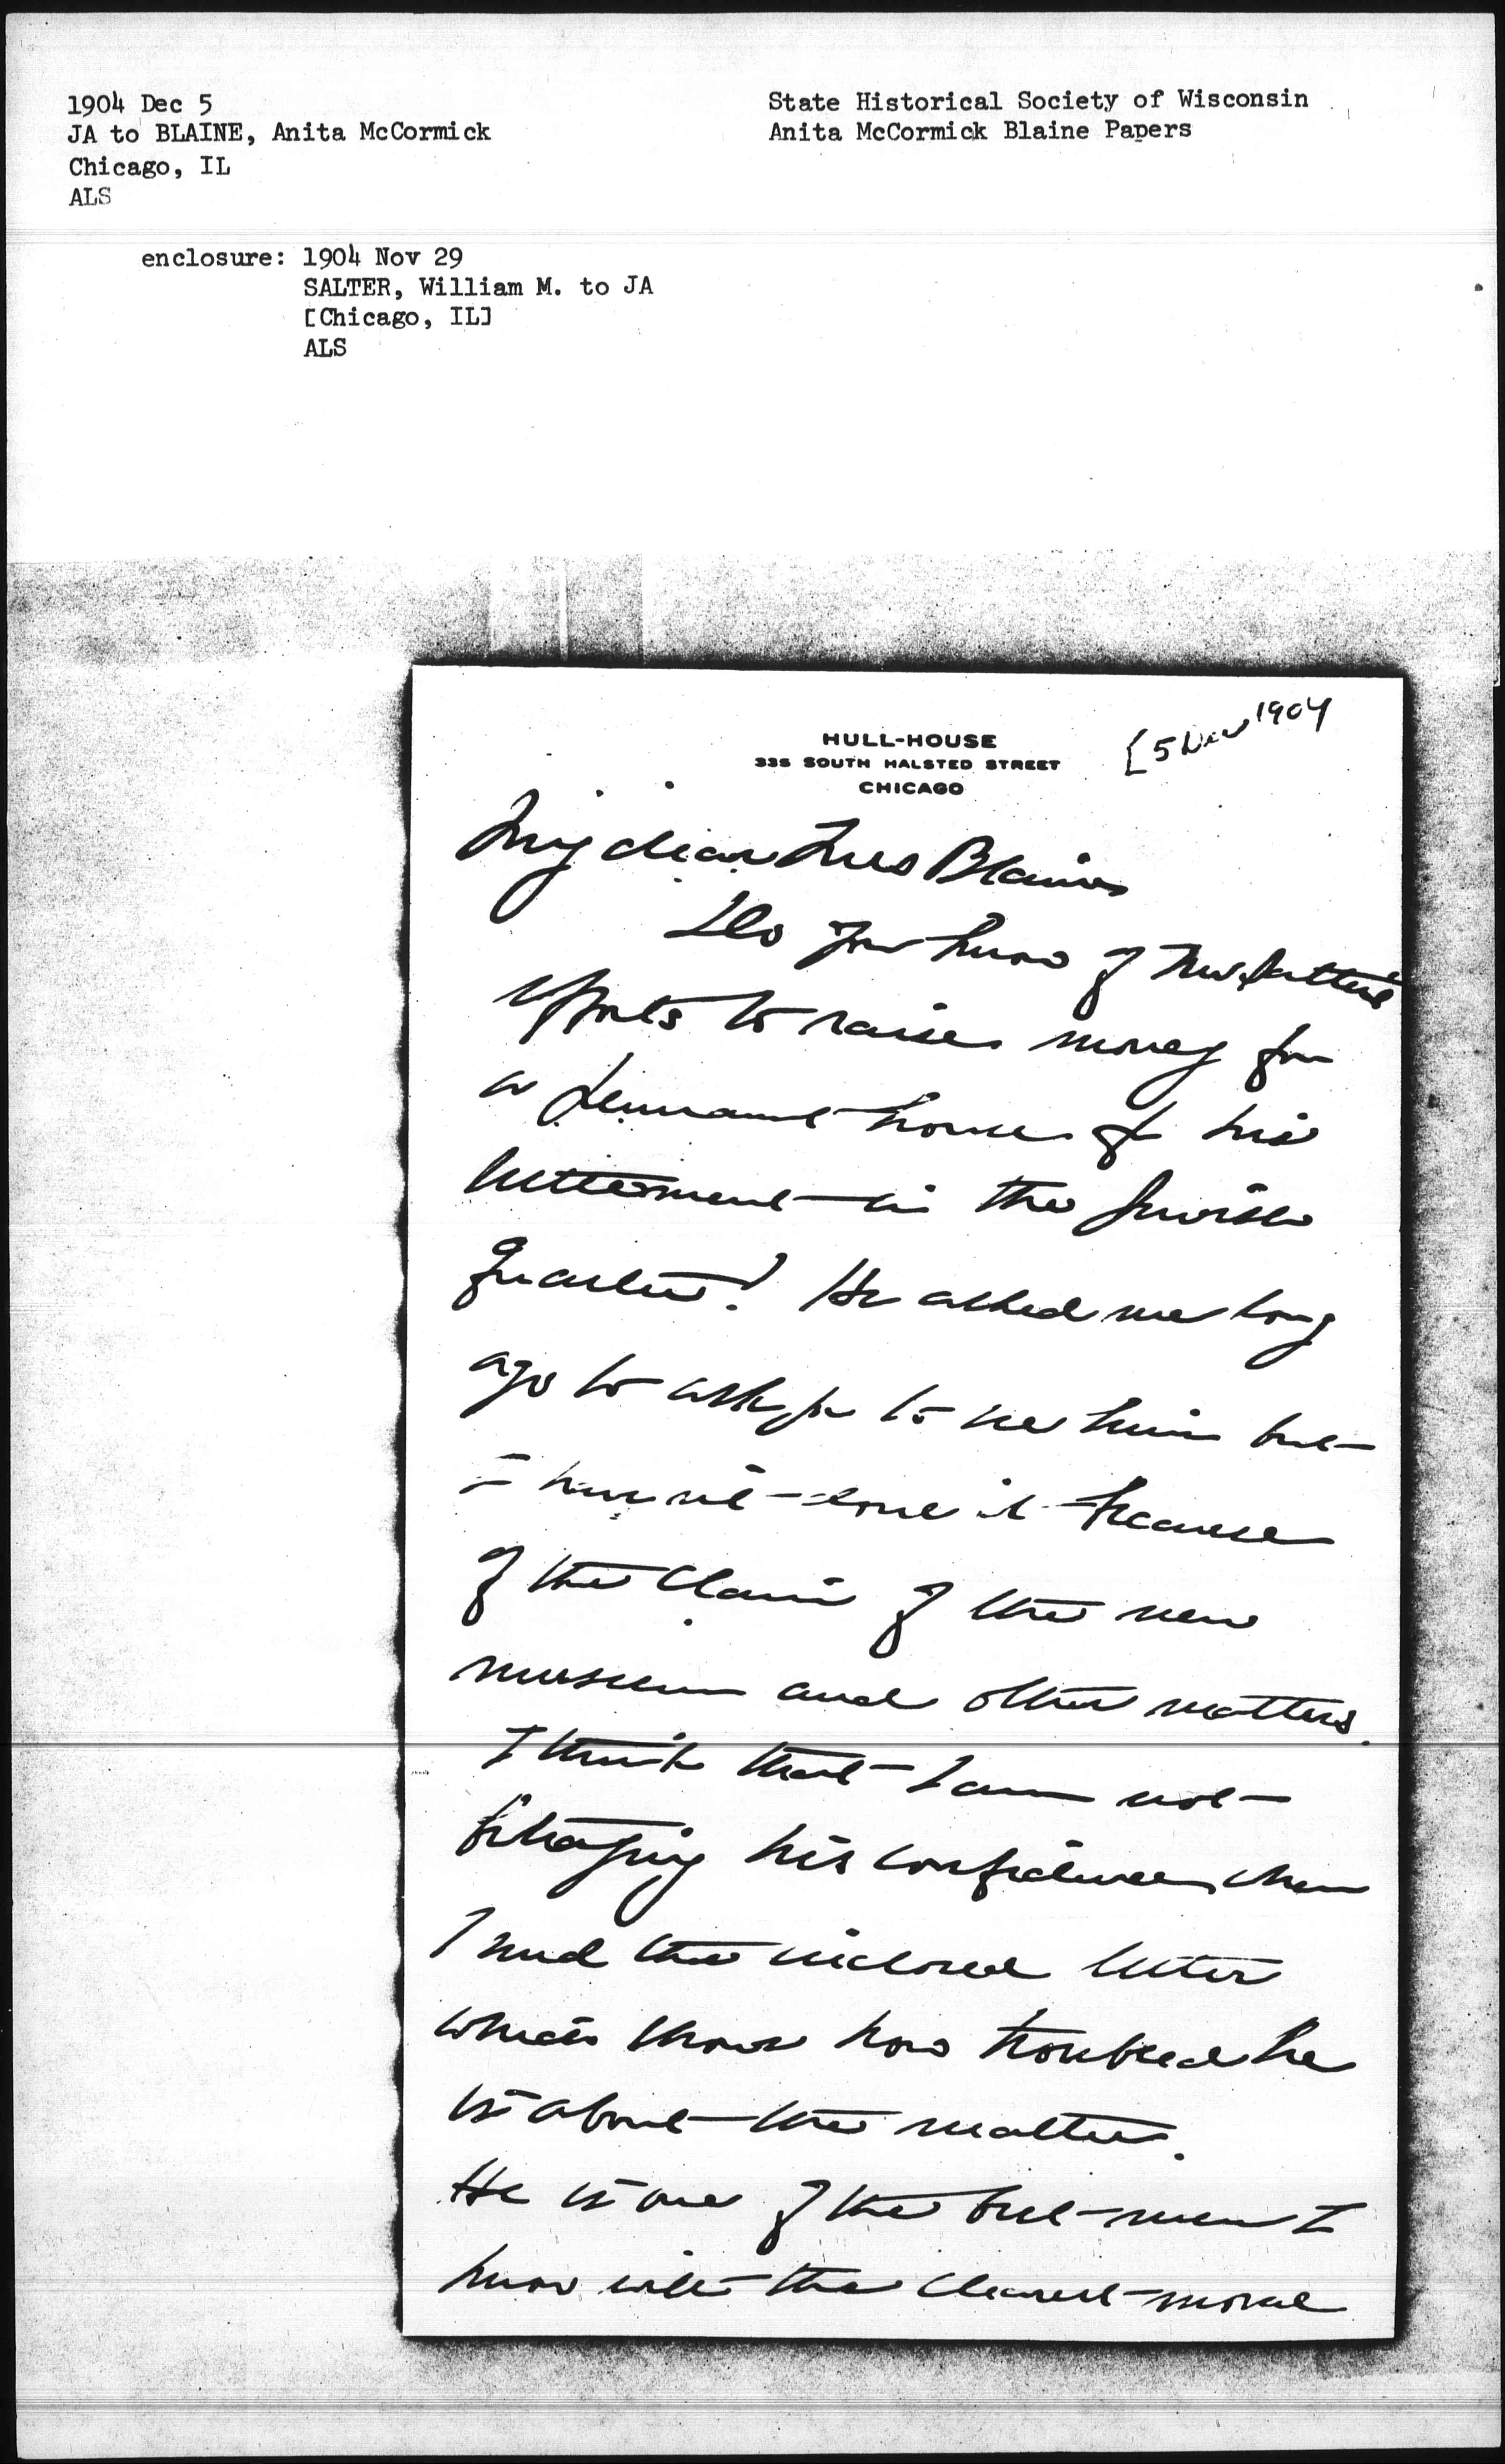 1904 Dec 5
JA to BLAINE, Anita McCormick
Chicago, IL
ALS
State Historical Society of Wisconsin
Anita McCormick Blaine Papers
enclosure: 1904 Nov 29
SALTER, William M. to JA
[Chicago, IL]
ALS
HULL-HOUSE
335 SOUTH HALSTED STREET
CHICAGO
[5 Dec 1904
My dear Mrs Blaine
Do you know of Mr. Salter's
efforts to raise money for
a permanent home of his
settlement in the Jewish
quarter? He asked me long
ago to ask you to see him but
I have not done it because
of the claim of the new
museum and other matters.
I think that I am not
betraying his confidence when
I send the inclosed letter
which shows how troubled he
is about the matter.
He is one of the best men I
know with the clearest moral